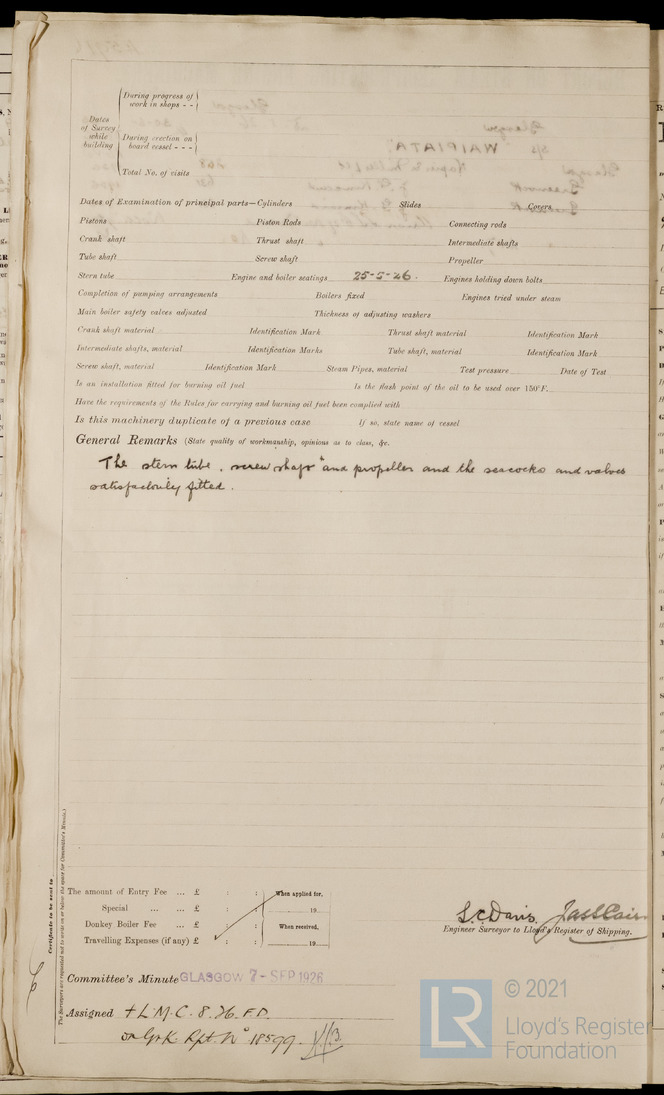 During progress of
work in shops - -
Dates
of Survey
while
building
During erection on
board vessel - - -
Total No. of visits
Dates of Examination of principal parts—Cylinders Slides Covers
Pistons Piston Rods Connecting rods
Crank shaft Thrust shaft Intermediate shafts
Tube shaft Screw shaft Propeller
Stern tube Engine and boiler seatings 25-5-26. Engines holding down bolts
Completion of pumping arrangements Boilers fixed Engines tried under steam
Main boiler safety valves adjusted Thickness of adjusting washers
Crank shaft material Identification Mark Thrust shaft material Identification Mark
Intermediate shafts, material Identification Marks Tube shaft, material Identification Mark
Screw shaft, material Identification Mark Steam Pipes, material Test pressure Date of Test
Is an installation fitted for burning oil fuel Is the flash point of the oil to be used over 150°F.
Have the requirements of the Rules for carrying and burning oil fuel been complied with
Is this machinery duplicate of a previous case If so, state name of vessel
General Remarks (State quality of workmanship, opinions as to class, &c.
The stern tube, screw shaft and propeller and the seacocks and valves
satisfactorily fitted.
Certificate to be sent to
The Surveyors are requested not to write on or below the space for Committee's Minute.
The amount of Entry Fee ... £ : : When applied for,
Special ... ... £ : : 19
Donkey Boiler Fee ... £ : : When received,
Travelling Expenses (if any) £ : : 19
S.C. Davis.
Engineer Surveyor to Lloyd's Register of Shipping.
Committee's Minute GLASGOW 7-SEP 1926
Assigned + L.M.C. 8.26. F.D.
on Grk. Rpt. No 18599.
© 2021
LR
Lloyd's Register
Foundation